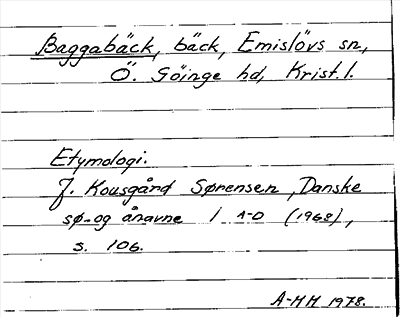 Baggabäck, bäck, Emislövs sn,
Ö. Göinge hd, Krist. l.
Etymologi.
J. Kousgård Sørensen, Danske
sø- og ånavne 1 A-D (1968),
s. 106.
A-MH 1978.